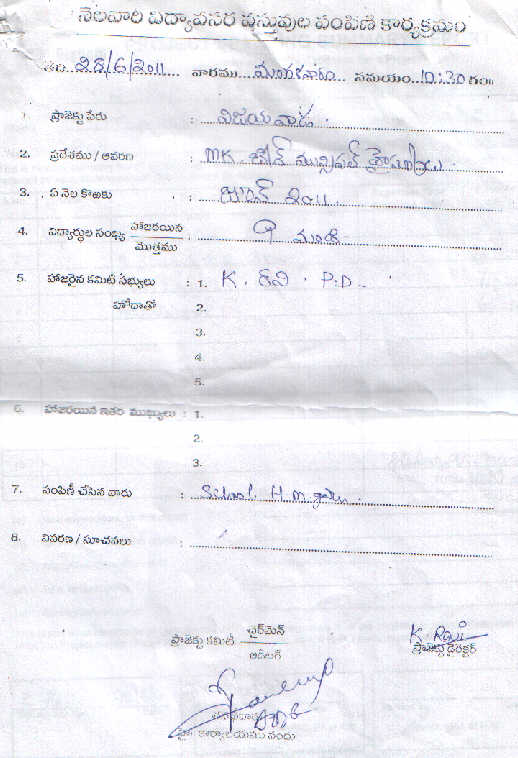 నెలవారి విద్యావసర వస్తువుల పంపిణి కార్యక్రమం
28/6/2011 వారము మంగళవారం సమయం 10:30 గం॥
1. ప్రాజెక్టు పేరు : విజయవాడ.
2. ప్రదేశము / ఆవరణ : MK. మున్సిపల్
3. ఏ నెల కొఱకు : జూన్ 2011.
4. విద్యార్థుల సంఖ్య హాజరయిన : 9 మంది
మొత్తము
5. హాజరైన కమిటీ సభ్యులు : 1. K. రవి. P.D.
హోదాతో 2.
3.
4
5.
6. హాజరయిన ఇతర ముఖ్యులు : 1.
2.
3.
7. పంపిణీ చేసిన వారు : School. H.M.
8. వివరణ / సూచనలు :
ప్రాజెక్టు కమిటీ ఛైర్‌మెన్
K. Ravi
ప్రాజెక్టు డైరెక్టర్
కార్యాలయము నందు